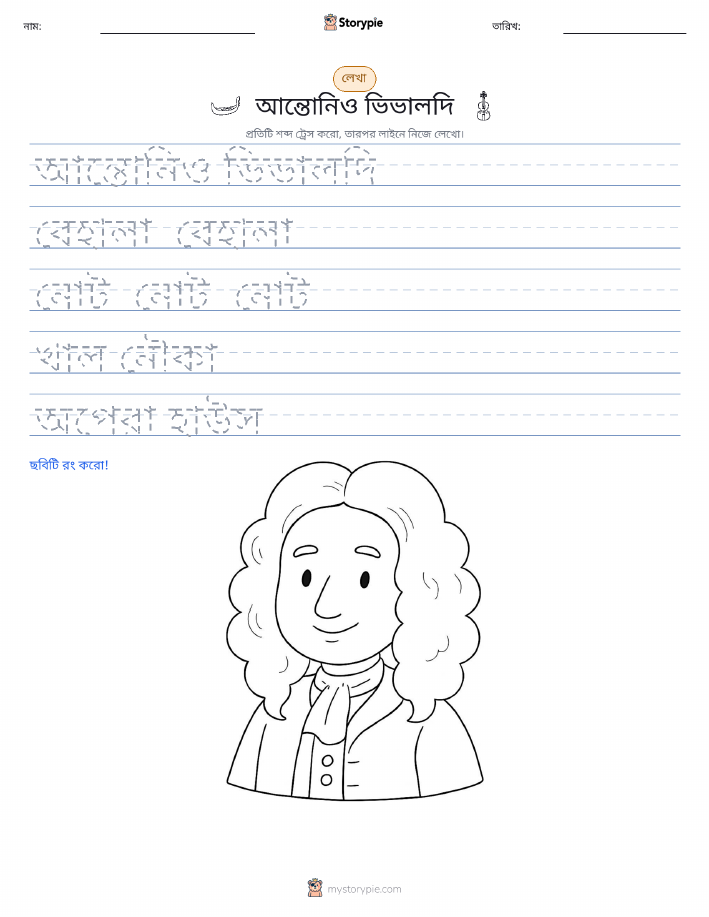 নাম:
Storypie
তারিখ:
লেখা
আন্তোনিও ভিভালদি
প্রতিটি শব্দ ট্রেস করো, তারপর লাইনে নিজে লেখো।
আন্তোনিও ভিভালদি
বেহালা বেহালা
নোট নোট নোট
খাল নৌকা
অপেরা হাউস
ছবিটি রং করো!
mystorypie.com